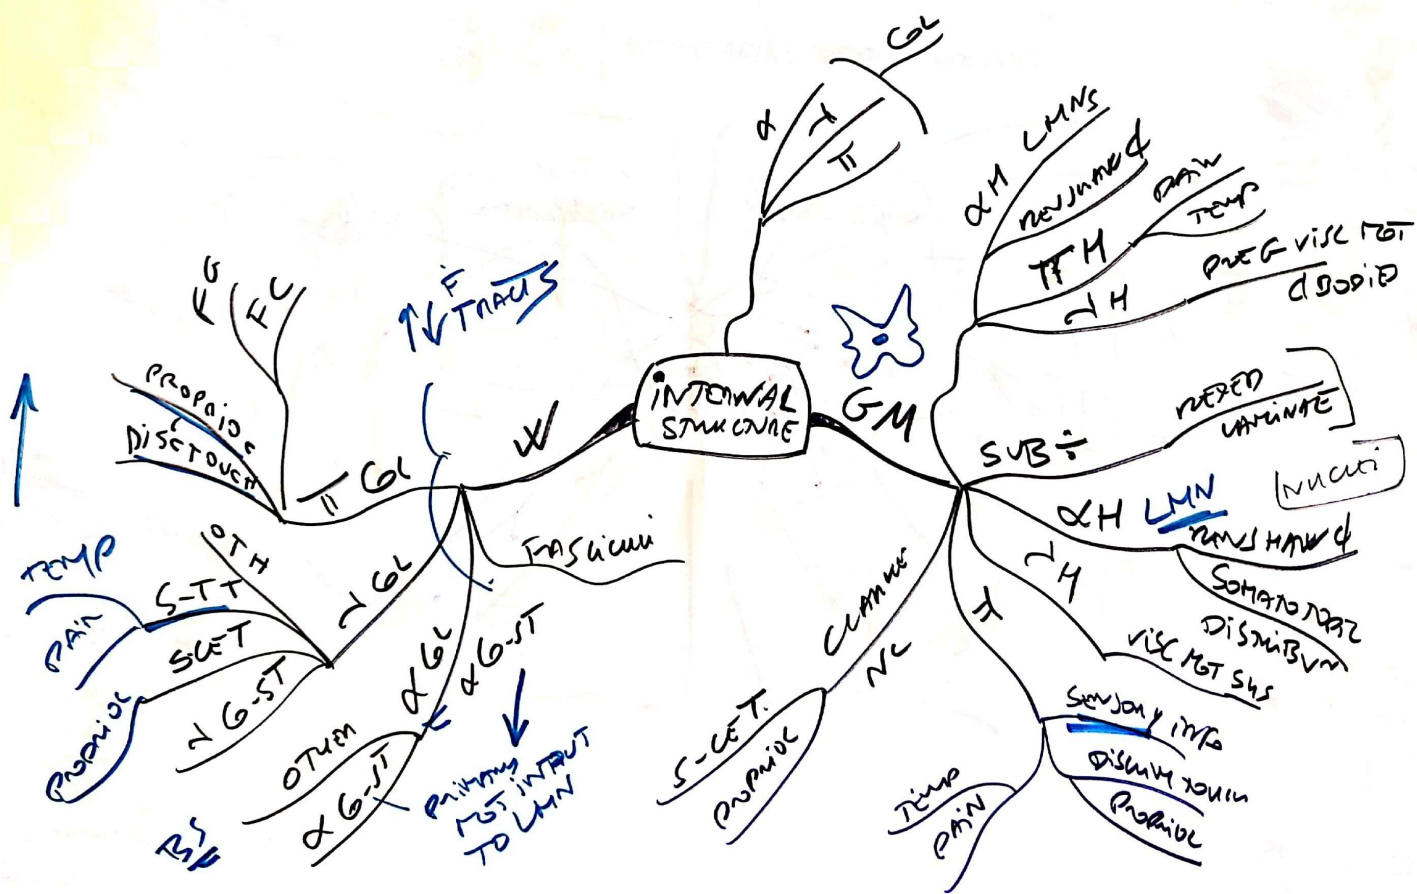 COL
α
λ
π
INTERNAL
STRUCTURE
GM
αH LMNS
RENSHAW ¢
πH
PAIN
TEMP
λH
PREG VISC MOT
¢ BODIES
SUB ÷
REXED
LAMINAE
NUCLEI
αH LMN
RENSHAW ¢
SOMATOTOPIC
DISTRIBUN
λH
VISC MOT SYS
π
SENSORY INFO
DISCRIM TOUCH
PROPRIOC
TEMP
PAIN
CLARKE
NC
S-CET.
PROPRIOC
W
↑↓ F
TRACTS
FASCICULI
π COL
FG
FC
PROPRIOC
DISC TOUCH
λ COL
OTH
S-TT
TEMP
PAIN
SCET
PROPRIOC
λ C-ST
α COL
α C-ST
OTHER
α C-ST
BS
PRIMARY
MOT INPUT
TO LMN